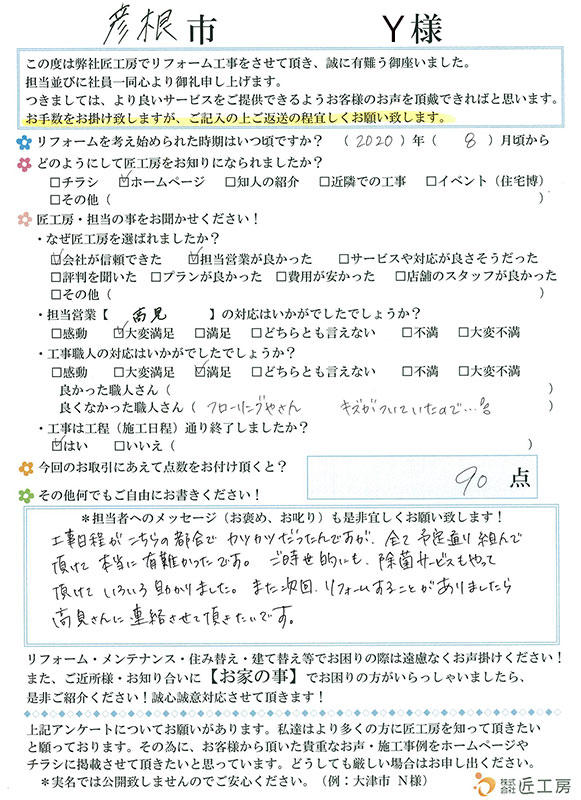 彦根市 Y様
この度は弊社匠工房でリフォーム工事をさせて頂き、誠に有難う御座いました。
担当並びに社員一同心より御礼申し上げます。
つきましては、より良いサービスをご提供できるようお客様のお声を頂戴できればと思います。
お手数をお掛け致しますが、ご記入の上ご返送の程宜しくお願い致します。
リフォームを考え始められた時期はいつ頃ですか？（2020）年（ 8 ）月頃から
どのようにして匠工房をお知りになられましたか？
□チラシ ☑ホームページ □知人の紹介 □近隣での工事 □イベント（住宅博）
□その他（ ）
匠工房・担当の事をお聞かせください！
・なぜ匠工房を選ばれましたか？
☑会社が信頼できた ☑担当営業が良かった □サービスや対応が良さそうだった
□評判を聞いた □プランが良かった □費用が安かった □店舗のスタッフが良かった
□その他（ ）
・担当営業【 高見 】の対応はいかがでしたでしょうか？
□感動 ☑大変満足 □満足 □どちらとも言えない □不満 □大変不満
・工事職人の対応はいかがでしたでしょうか？
□感動 □大変満足 ☑満足 □どちらとも言えない □不満 □大変不満
良かった職人さん（ ）
良くなかった職人さん（ フローリングやさん キズがついていたので… ）
・工事は工程（施工日程）通り終了しましたか？
☑はい □いいえ（ ）
今回のお取引にあえて点数をお付け頂くと？ 90 点
その他何でもご自由にお書きください！
＊担当者へのメッセージ（お褒め、お叱り）も是非宜しくお願い致します！
工事日程がこちらの都合でカツカツだったんですが、全て予定通り組んで
頂けて本当に有難かったです。ご時世的にも、除菌サービスもやって
頂けていろいろ助かりました。また次回、リフォームすることがありましたら
高見さんに連絡させて頂きたいです。
リフォーム・メンテナンス・住み替え・建て替え等でお困りの際は遠慮なくお声掛けください！
また、ご近所様・お知り合いに【お家の事】でお困りの方がいらっしゃいましたら、
是非ご紹介ください！誠心誠意対応させて頂きます！
上記アンケートについてお願いがあります。私達はより多くの方に匠工房を知って頂きたい
と願っております。その為に、お客様から頂いた貴重なお声・施工事例をホームページや
チラシに掲載させて頂きたいと思っています。どうしても厳しい場合はお申し出ください。
＊実名では公開致しませんのでご安心ください。（例：大津市 N様）
株式会社 匠工房